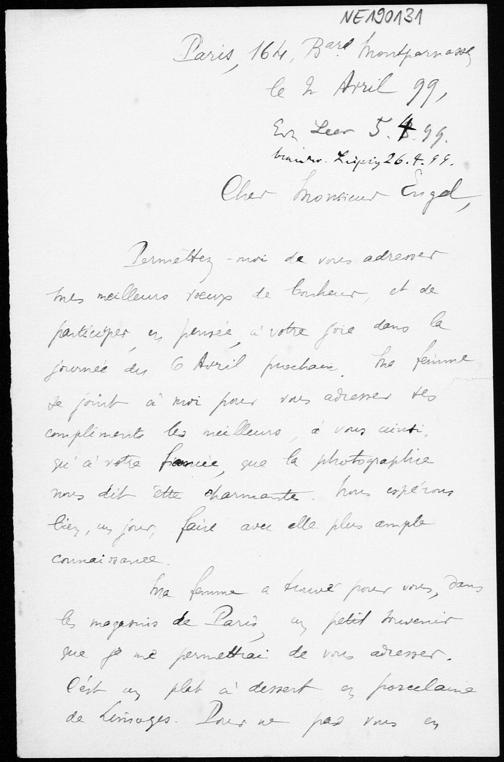 NE190131
Paris, 164, Bard Montparnasse
le 2 Avril 99,
Leer 5.4.99.
Leipzig 26.4.99.
Cher Monsieur Engel,
Permettez-moi de vous adresser
mes meilleurs voeux de bonheur, et de
participer, en pensée, à votre joie dans la
journée du 6 Avril prochain. Ma femme
se joint à moi pour vous adresser ses
compliments les meilleurs, à vous ainsi
qu'à votre fiancée, que la photographie
nous dit être charmante. Nous espérons
bien, un jour, faire avec elle plus ample
connaissance.
Ma femme a trouvé pour vous, dans
les magasins de Paris, un petit souvenir
que je me permettrai de vous adresser.
C'est un plat à dessert en porcelaine
de Limoges. Pour ne pas vous en